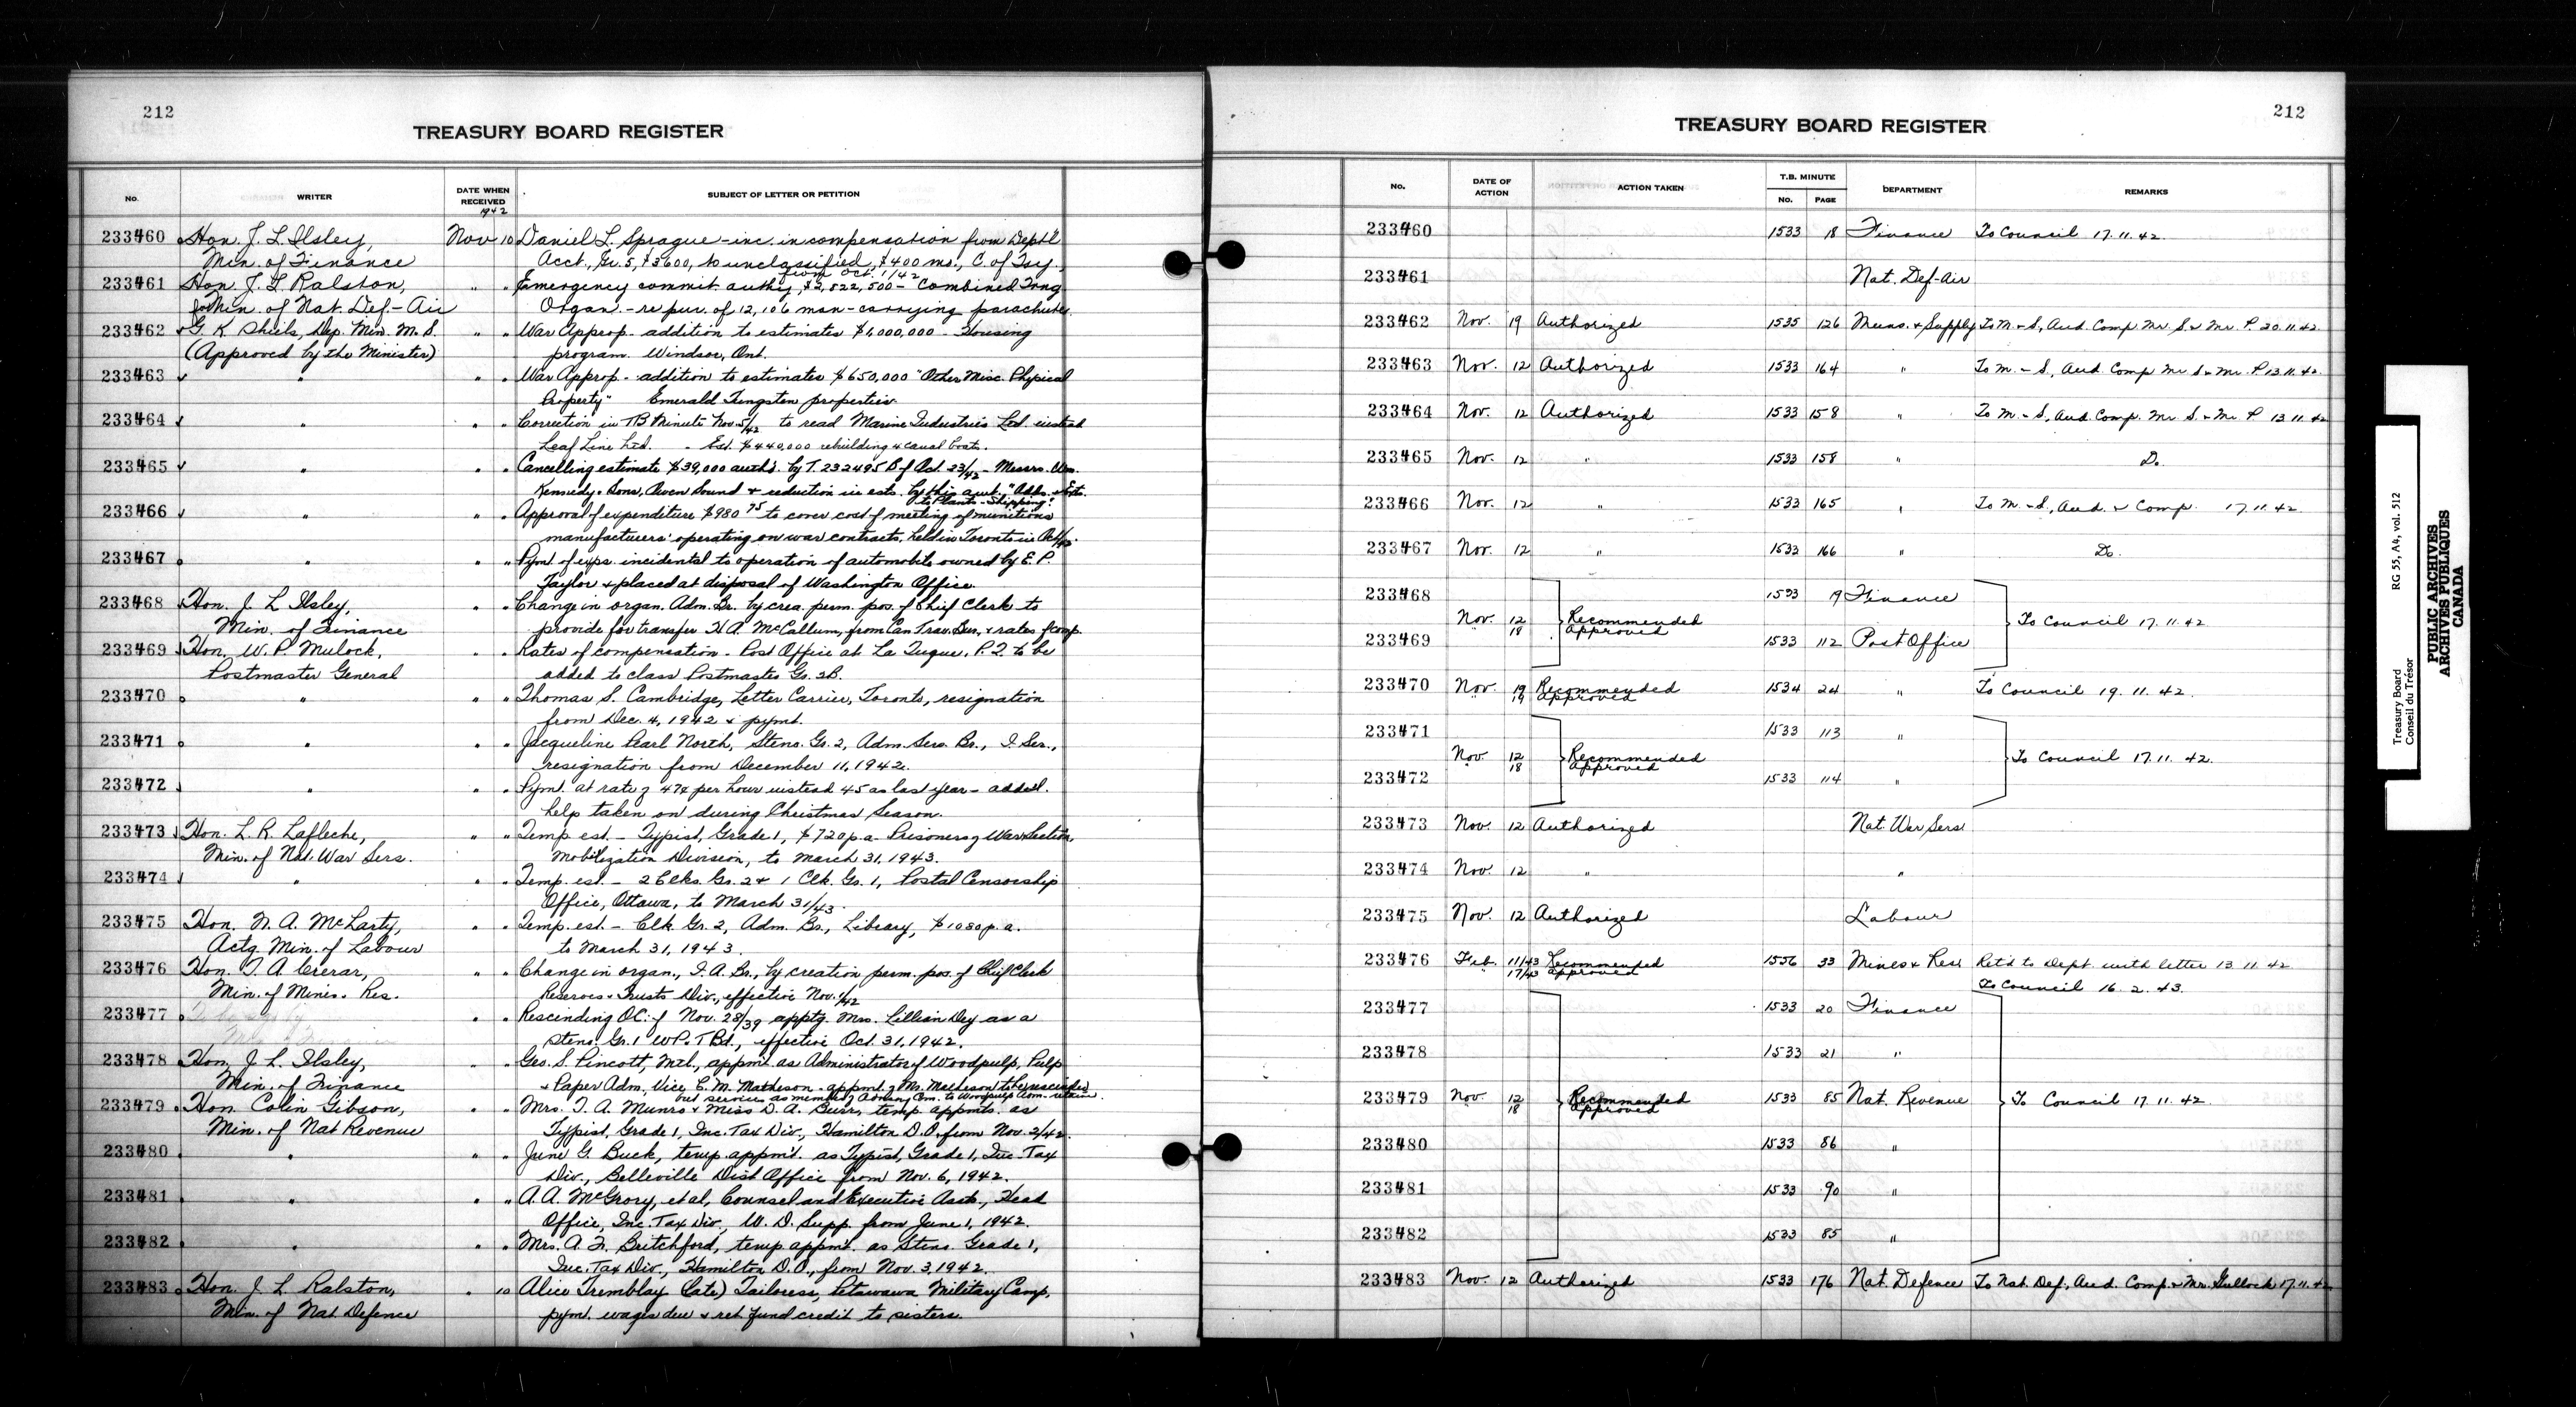 212
TREASURY BOARD REGISTER
No. WRITER DATE WHEN RECEIVED SUBJECT OF LETTER OR PETITION
1942
233460 Hon. J. L. Ilsley, Nov 10 Daniel L. Sprague - inc. in compensation from Deptl
Min. of Finance Acct., Gr. 5, $3600, to unclassified, $400 mo., C. of Tsy.
from Oct. 1/42
233461 Hon. J. L. Ralston, " " Emergency commit. authy, $2,522,500 - "Combined Trng
Min. of Nat. Def. - Air Organ. - re pur. of 12,106 man-carrying parachutes.
233462 G. K. Sheils, Dep. Min. M. S. " " War Approp - addition to estimates $1,000,000 - Housing
(Approved by the Minister) program. Windsor, Ont.
233463 " " " War Approp. - addition to estimates $650,000 "Other Misc. Physical
Property" Emerald Tungsten properties
233464 " " " Correction in TB Minute Nov. 5/42 to read Marine Industries Ltd. instead
Leaf Line Ltd. - Est. $440,000 rebuilding 4 canal boats.
233465 " " " Cancelling estimate $39,000 auth'd. by T. 232495 B of Oct. 23/42 - Messrs. Wm.
Kennedy & Sons, Owen Sound & reduction in ests. by this amt. "Adds. & Exts.
to Plants - Shipping".
233466 " " " Approval of expenditure $980 75 to cover cost of meeting of munitions
manufacturers' operating on war contracts, held in Toronto in Oct/42.
233467 " " " Pymt. of exps. incidental to operation of automobile owned by E. P.
Taylor & placed at disposal of Washington Office.
233468 Hon. J. L. Ilsley, " " Change in organ. Adm. Br. by crea. perm. pos. of Chief Clerk to
Min. of Finance provide for transfer H. A. McCallum, from Can Trav. Bur., & rates of comp.
233469 Hon. W. P. Mulock, " " Rates of compensation - Post Office at La Tuque, P.Q. to be
Postmaster General added to class Postmaster Gr. 2B.
233470 " " " Thomas S. Cambridge, Letter Carrier, Toronto, resignation
from Dec. 4, 1942 & pymt.
233471 " " " Jacqueline Pearl North, Steno. Gr. 2, Adm. Serv. Br., I. Ser.,
resignation from December 11, 1942.
233472 " " " Pymt. at rate of 47¢ per hour instead 45 as last year - addnl.
help taken on during Christmas Season.
233473 Hon. L. R. Lafleche, " " Temp est. - Typist, Grade 1, $720 p.a. Prisoners of War Section,
Min. of Nat. War Sers. Mobilization Division, to March 31, 1943.
233474 " " " Temp. est. - 2 Clks. Gr. 2 & 1 Clk. Gr. 1, Postal Censorship
Office, Ottawa, to March 31/43.
233475 Hon. N. A. McLarty, " " Temp. est. - Clk. Gr. 2, Adm. Br., Library, $1080 p.a.
Actg. Min. of Labour to March 31, 1943.
233476 Hon. T. A. Crerar, " " Change in organ., I. A. Br., by creation perm. pos. of Chief Clerk
Min. of Mines. Res. Reserves & Trusts Div., effective Nov. 1/42
233477 " " Rescending O.C. of Nov. 28/39 apptg. Mrs. Lillian Dey as a
Steno. Gr. 1 W.P. T Bd., effective Oct. 31, 1942.
233478 Hon. J. L. Ilsley, " " Geo. S. Pincott, Mtl., appmt. as Administrator of Woodpulp, Pulp
Min. of Finance & Paper Adm., Vice C. M. Matheson - appmt. of Mr. Matheson to be rescinded
but services as member of Advisory Com. to Woodpulp Adm. retained.
233479 Hon. Colin Gibson, " " Mrs. T. A. Munro & Miss D. A. Burr, temp. appmts. as
Min. of Nat Revenue Typist, Grade 1, Inc. Tax Div., Hamilton D.O. from Nov. 2/42.
233480 " " " June G. Buck, temp. appmt. as Typist, Grade 1, Inc. Tax
Div., Belleville Dist Office from Nov. 6, 1942.
233481 " " " A. A. McGrory, et al, Counsel and Executive Assts., Head
Office, Inc. Tax Div., W. D. Supp. from June 1, 1942.
233482 " " " Mrs. A. F. Britchford, temp. appmt. as Steno. Grade 1,
Inc. Tax Div., Hamilton D.O., from Nov. 3, 1942.
233483 Hon. J. L. Ralston, " 10 Alice Tremblay (late) Tailoress, Petawawa Military Camp,
Min. of Nat. Defence pymt. wages due & ret. fund credit to sisters.
212
TREASURY BOARD REGISTER
No. DATE OF ACTION ACTION TAKEN T.B. MINUTE No. PAGE DEPARTMENT REMARKS
233460 1533 18 Finance To Council 17.11.42.
233461 Nat. Def-Air
233462 Nov. 19 Authorized 1535 126 Muns. & Supply To M. & S., Aud. Comp. Mr. S. & Mr. P. 20.11.42
233463 Nov. 12 Authorized 1533 164 " To M. & S., Aud. Comp. Mr. S. & Mr. P. 13.11.42.
233464 Nov. 12 Authorized 1533 158 " To M. & S., Aud. Comp. Mr. S. & Mr. P. 13.11.42
233465 Nov. 12 " 1533 158 " Do.
233466 Nov. 12 " 1533 165 " To M. & S., Aud. & Comp. 17.11.42.
233467 Nov. 12 " 1533 166 " Do.
233468 1533 19 Finance
Nov. 12 Recommended To Council 17.11.42
18 approved
233469 1533 112 Post Office
233470 Nov. 19 Recommended 1534 24 " To Council 19.11.42.
19 approved
233471 1533 113 "
Nov. 12 Recommended To Council 17.11.42.
18 approved
233472 1533 114 "
233473 Nov. 12 Authorized Nat. War Sers.
233474 Nov. 12 " "
233475 Nov. 12 Authorized Labour
233476 Feb. 11/43 Recommended 1556 33 Mines & Res. Ret'd to Dept. with letter 13.11.42
17/43 approved
To Council 16.2.43.
233477 1533 20 Finance
233478 1533 21 "
233479 Nov. 12 Recommended 1533 85 Nat. Revenue To Council 17.11.42.
18 approved
233480 1533 86 "
233481 1533 90 "
233482 1533 85 "
233483 Nov. 12 Authorized 1533 176 Nat. Defence To Nat. Def., Aud. Comp. & Mr. Gullock 17.11.42
Treasury Board
Conseil du Trésor
RG 55, A4, vol. 512
PUBLIC ARCHIVES
ARCHIVES PUBLIQUES
CANADA